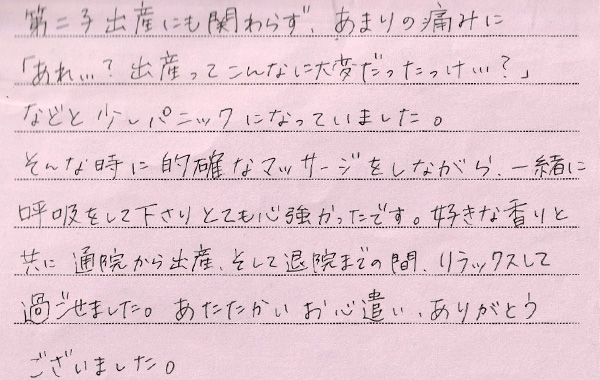 第二子出産にも関わらず、あまりの痛みに
「あれ…?出産ってこんなに大変だったっけ…?」
などと少しパニックになっていました。
そんな時に的確なマッサージをしながら、一緒に
呼吸をして下さりとても心強かったです。好きな香りと
共に通院から出産、そして退院までの間、リラックスして
過ごせました。あたたかいお心遣い、ありがとう
ございました。